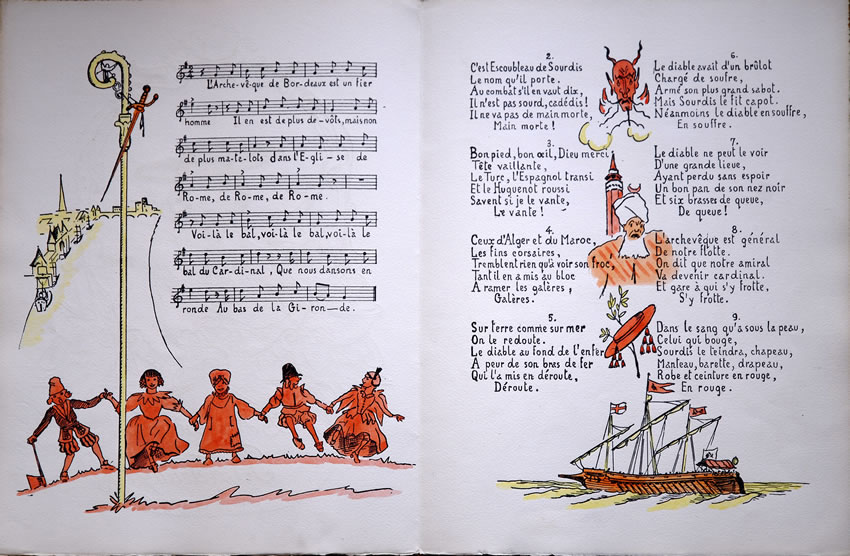 L'Ar-che-vê-que de Bor-deaux est un fier
homme Il en est de plus dé-vôts, mais non
de plus ma-te-lots dans l'E-gli-se de
Ro-me, de Ro-me, de Ro-me.
Voi-là le bal, voi-là le bal, voi-là le
bal du Car-di-nal, Que nous dansons en
ronde Au bas de la Gi-ron-de.
2.
C'est Escoubleau de Sourdis
Le nom qu'il porte.
Au combat s'il en vaut dix,
Il n'est pas sourd, cadédis!
Il ne va pas de main morte,
Main morte!
3.
Bon pied, bon œil, Dieu merci
Tête vaillante,
Le Turc, l'Espagnol transi
Et le Huguenot roussi
Savent si je le vante,
Le vante!
4.
Ceux d'Alger et du Maroc,
Les fins corsaires,
Tremblent rien qu'à voir son froc,
Tant il en a mis au bloc
A ramer les galères,
Galères.
5.
Sur terre comme sur mer
On le redoute.
Le diable au fond de l'enfer
A peur de son bras de fer
Qui l'a mis en déroute,
Déroute.
6.
Le diable avait d'un brûlot
Chargé de soufre,
Armé son plus grand sabot.
Mais Sourdis le fit capot.
Néanmoins le diable en souffre,
En souffre.
7.
Le diable ne peut le voir
D'une grande lieue,
Ayant perdu sans espoir
Un bon pan de son nez noir
Et six brasses de queue,
De queue!
8.
L'archevêque est général
De notre flotte.
On dit que notre amiral
Va devenir cardinal.
Et gare à qui s'y frotte,
S'y frotte.
9.
Dans le sang qu'a sous la peau,
Celui qui bouge,
Sourdis le teindra, chapeau,
Manteau, barette, drapeau,
Robe et ceinture en rouge,
En rouge.